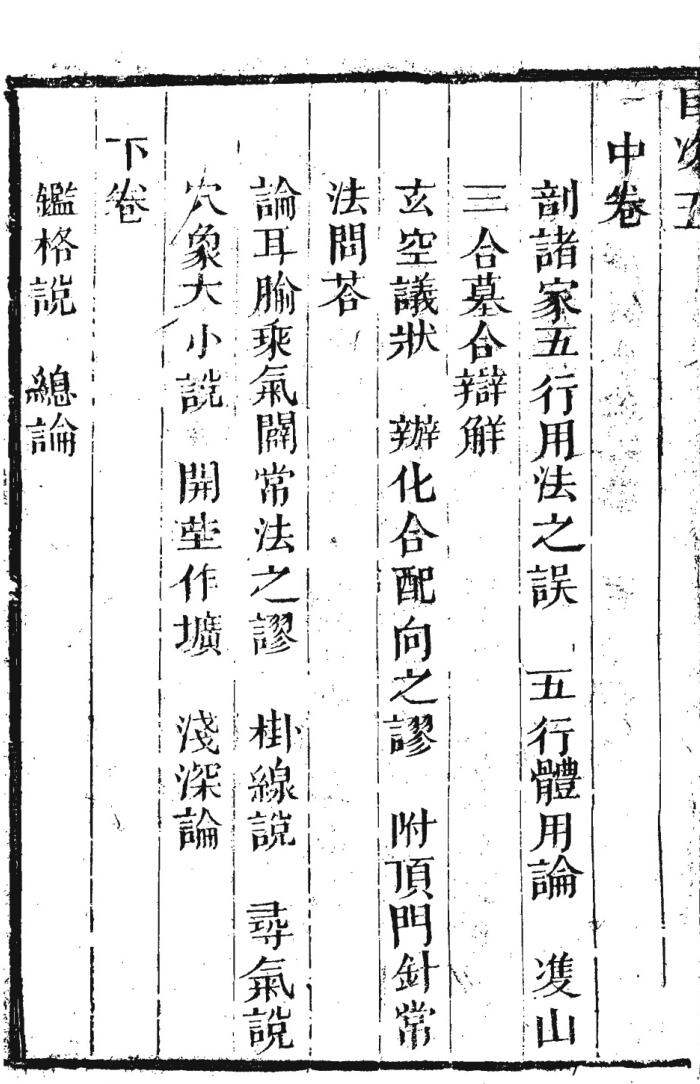 中卷
剖諸家五行用法之誤　五行體用論　雙山
三合墓合辯解
玄空議狀　辦化合配向之謬　附頂門針常
法問荅
論耳腧乘氣闢常法之謬　掛線説　尋氣説
穴象大小説　開塋作壙　淺深論
下卷
鑑格説　總論